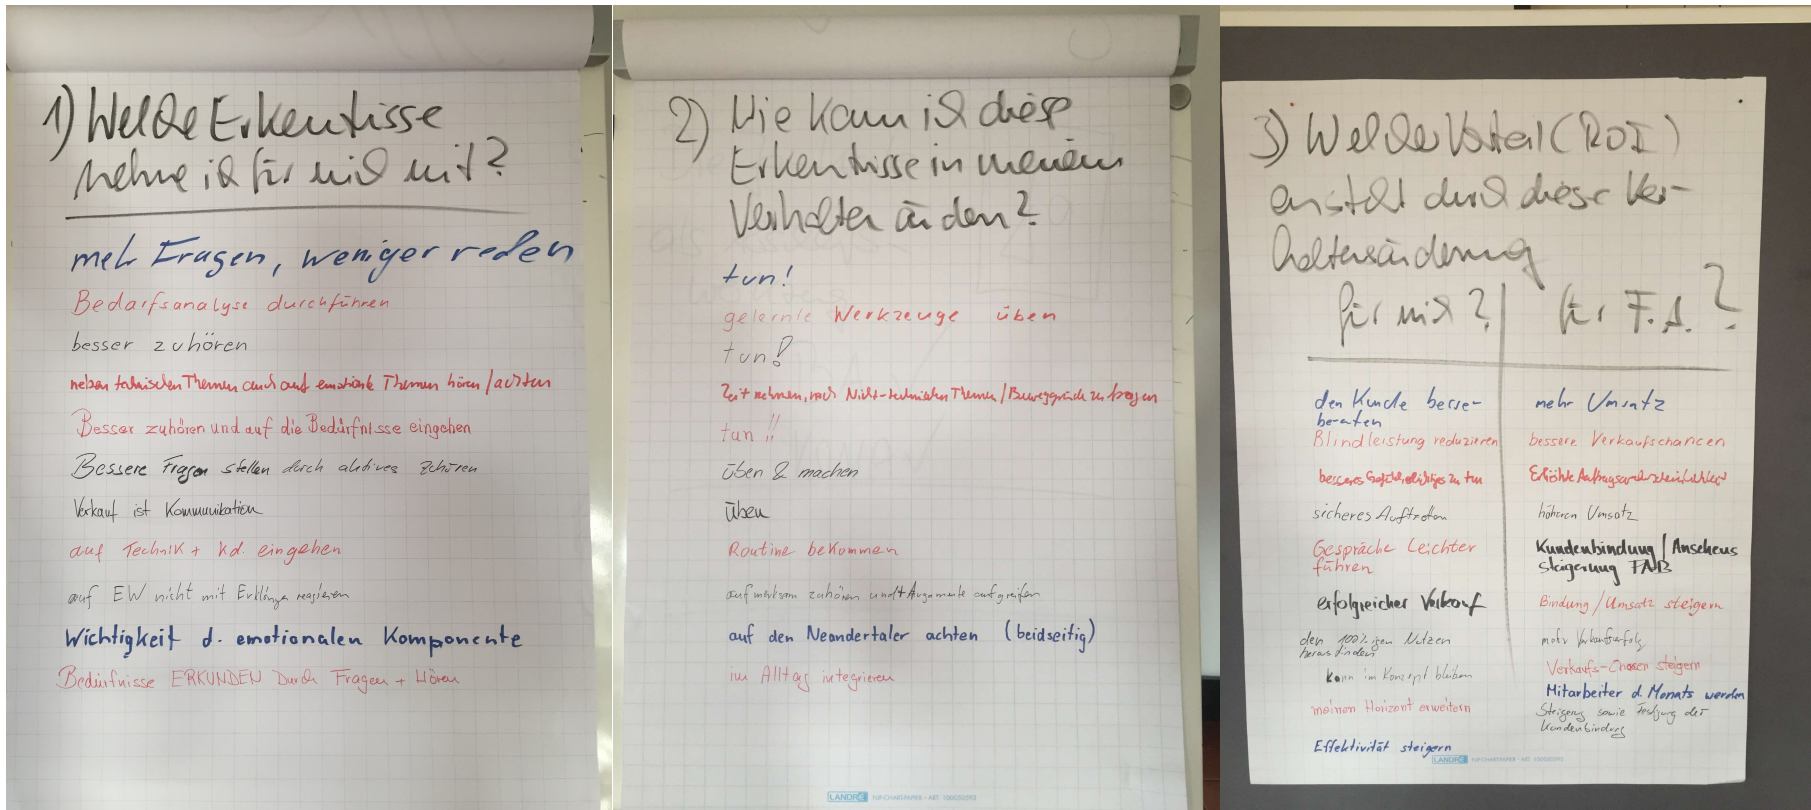 1) Welche Erkentisse
nehme ich für mich mit?
mehr Fragen, weniger reden
Bedarfsanalyse durchführen
besser zuhören
neben technischen Themen auch auf emotionale Themen hören / achten
Besser zuhören und auf die Bedürfnisse eingehen
Bessere Fragen stellen durch aktives Zuhören
Verkauf ist Kommunikation
auf Technik + Kd. eingehen
auf EW nicht mit Erklärunge reagieren
Wichtigkeit d. emotionalen Komponente
Bedürfnisse ERKUNDEN Durch Fragen + Hören
2) Wie kann ich diese
Erkentnisse in meinem
Verhalten änden?
tun!
gelernte Werkzeuge üben
tun!
Zeit nehmen, nach Nicht-technischen Themen / Beweggründe zu fragen
tun!!
üben & machen
üben
Routine bekommen
aufmerksam zuhören und Argumente aufgreifen
auf den Neandertaler achten (beidseitig)
im Alltag integrieren
LANDRÉ FLIPCHARTPAPIER - ART. 100050593
3) Welcher Vorteil (ROI)
ensteht durch diese Ver-
haltensänderung
für mich? für F.A.?
den Kunde besser
beraten
Blindleistung reduzieren
besseres Gefühl richtiges zu tun
sicheres Auftreten
Gespräche Leichter
führen
erfolgreicher Verkauf
den 100%igen Nutzen
herausfinden
kann im Konzept bleiben
meinen Horizont erweitern
Effektivität steigern
mehr Umsatz
bessere Verkaufschancen
Erhöhte Auftragswahrscheinlichkeit
höheren Umsatz
Kundenbindung / Ansehens
steigerung FAB
Bindung / Umsatz steigern
mehr Verkaufserfolg
Verkaufs-Chasen steigern
Mitarbeiter d. Monats werden
Steigerung sowie Festigung der
Kundenbindung
LANDRÉ FLIPCHARTPAPIER - ART. 100050593